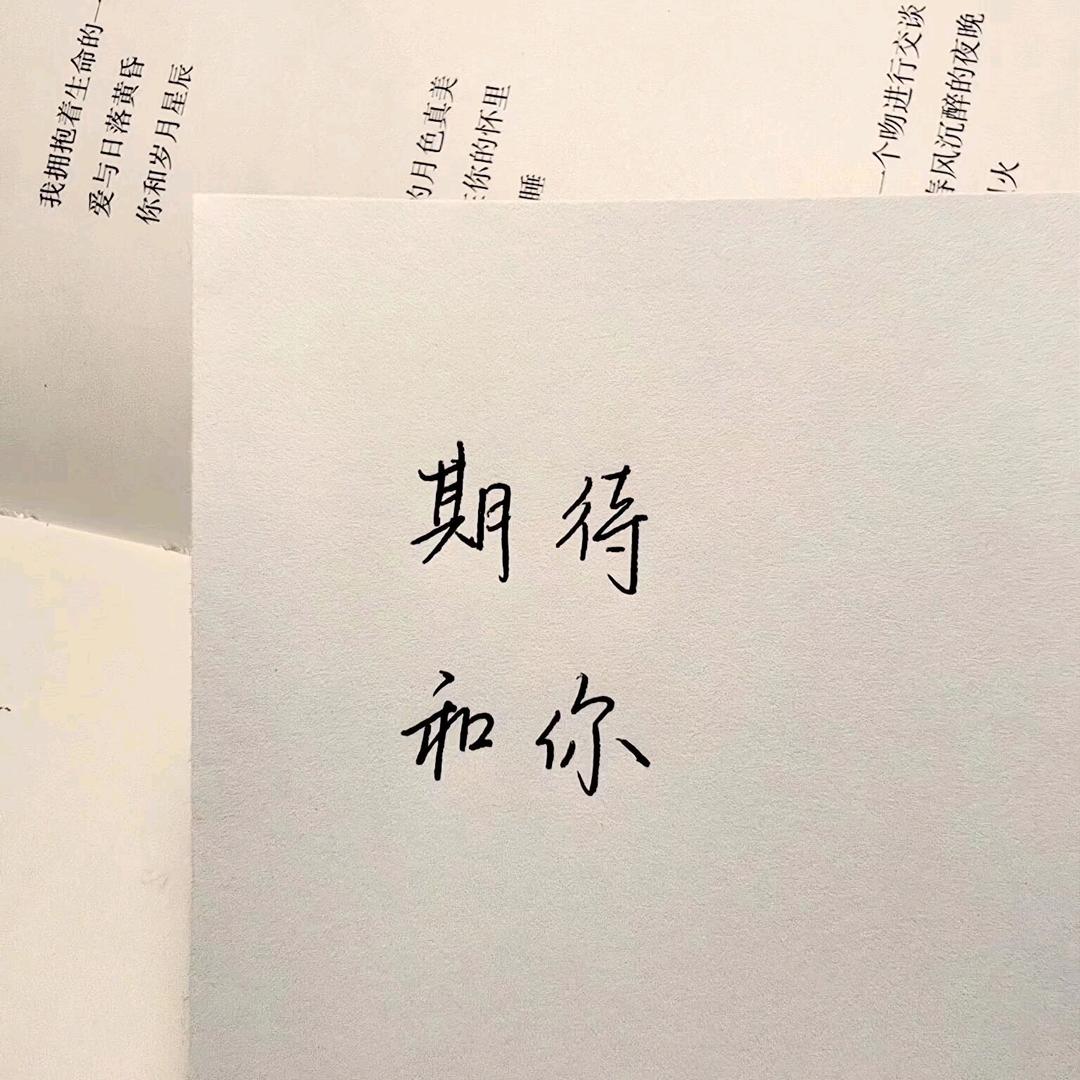 我拥抱着生命的一
爱与日落黄昏
你和岁月星辰
的月色真美
在你的怀里
睡
一个吻进行交谈
春风沉醉的夜晚
火
期待
和你